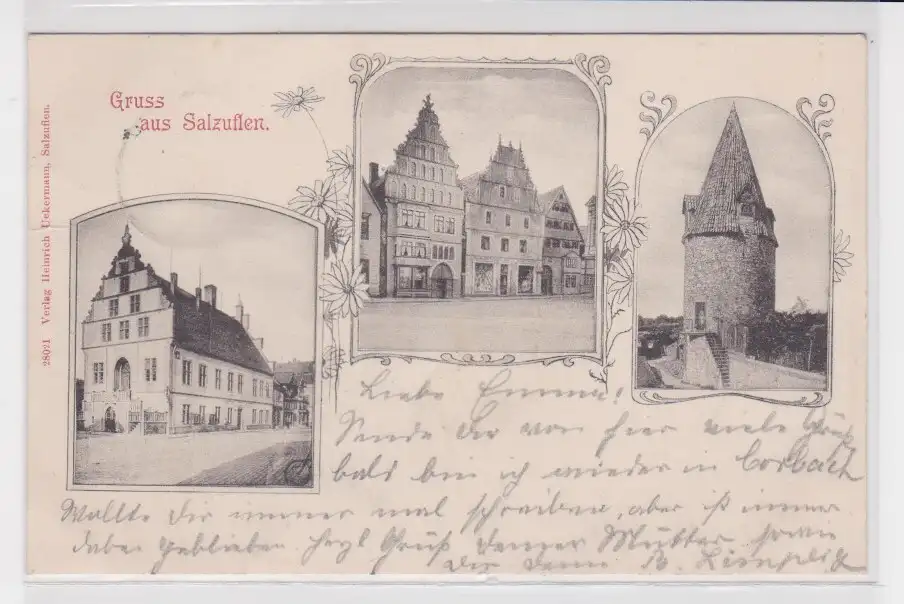 Gruss
aus Salzuflen.
28021 Verlag Heinrich Uekermann, Salzuflen.
Liebe Emma!
Sende Dir von hier viele Grüß
bald bin ich wieder in Corbach
Wollte Dir immer mal schreiben, aber ist immer
dabei geblieben herzl Gruß Deiner Mutter sowie
Dir Deine B.